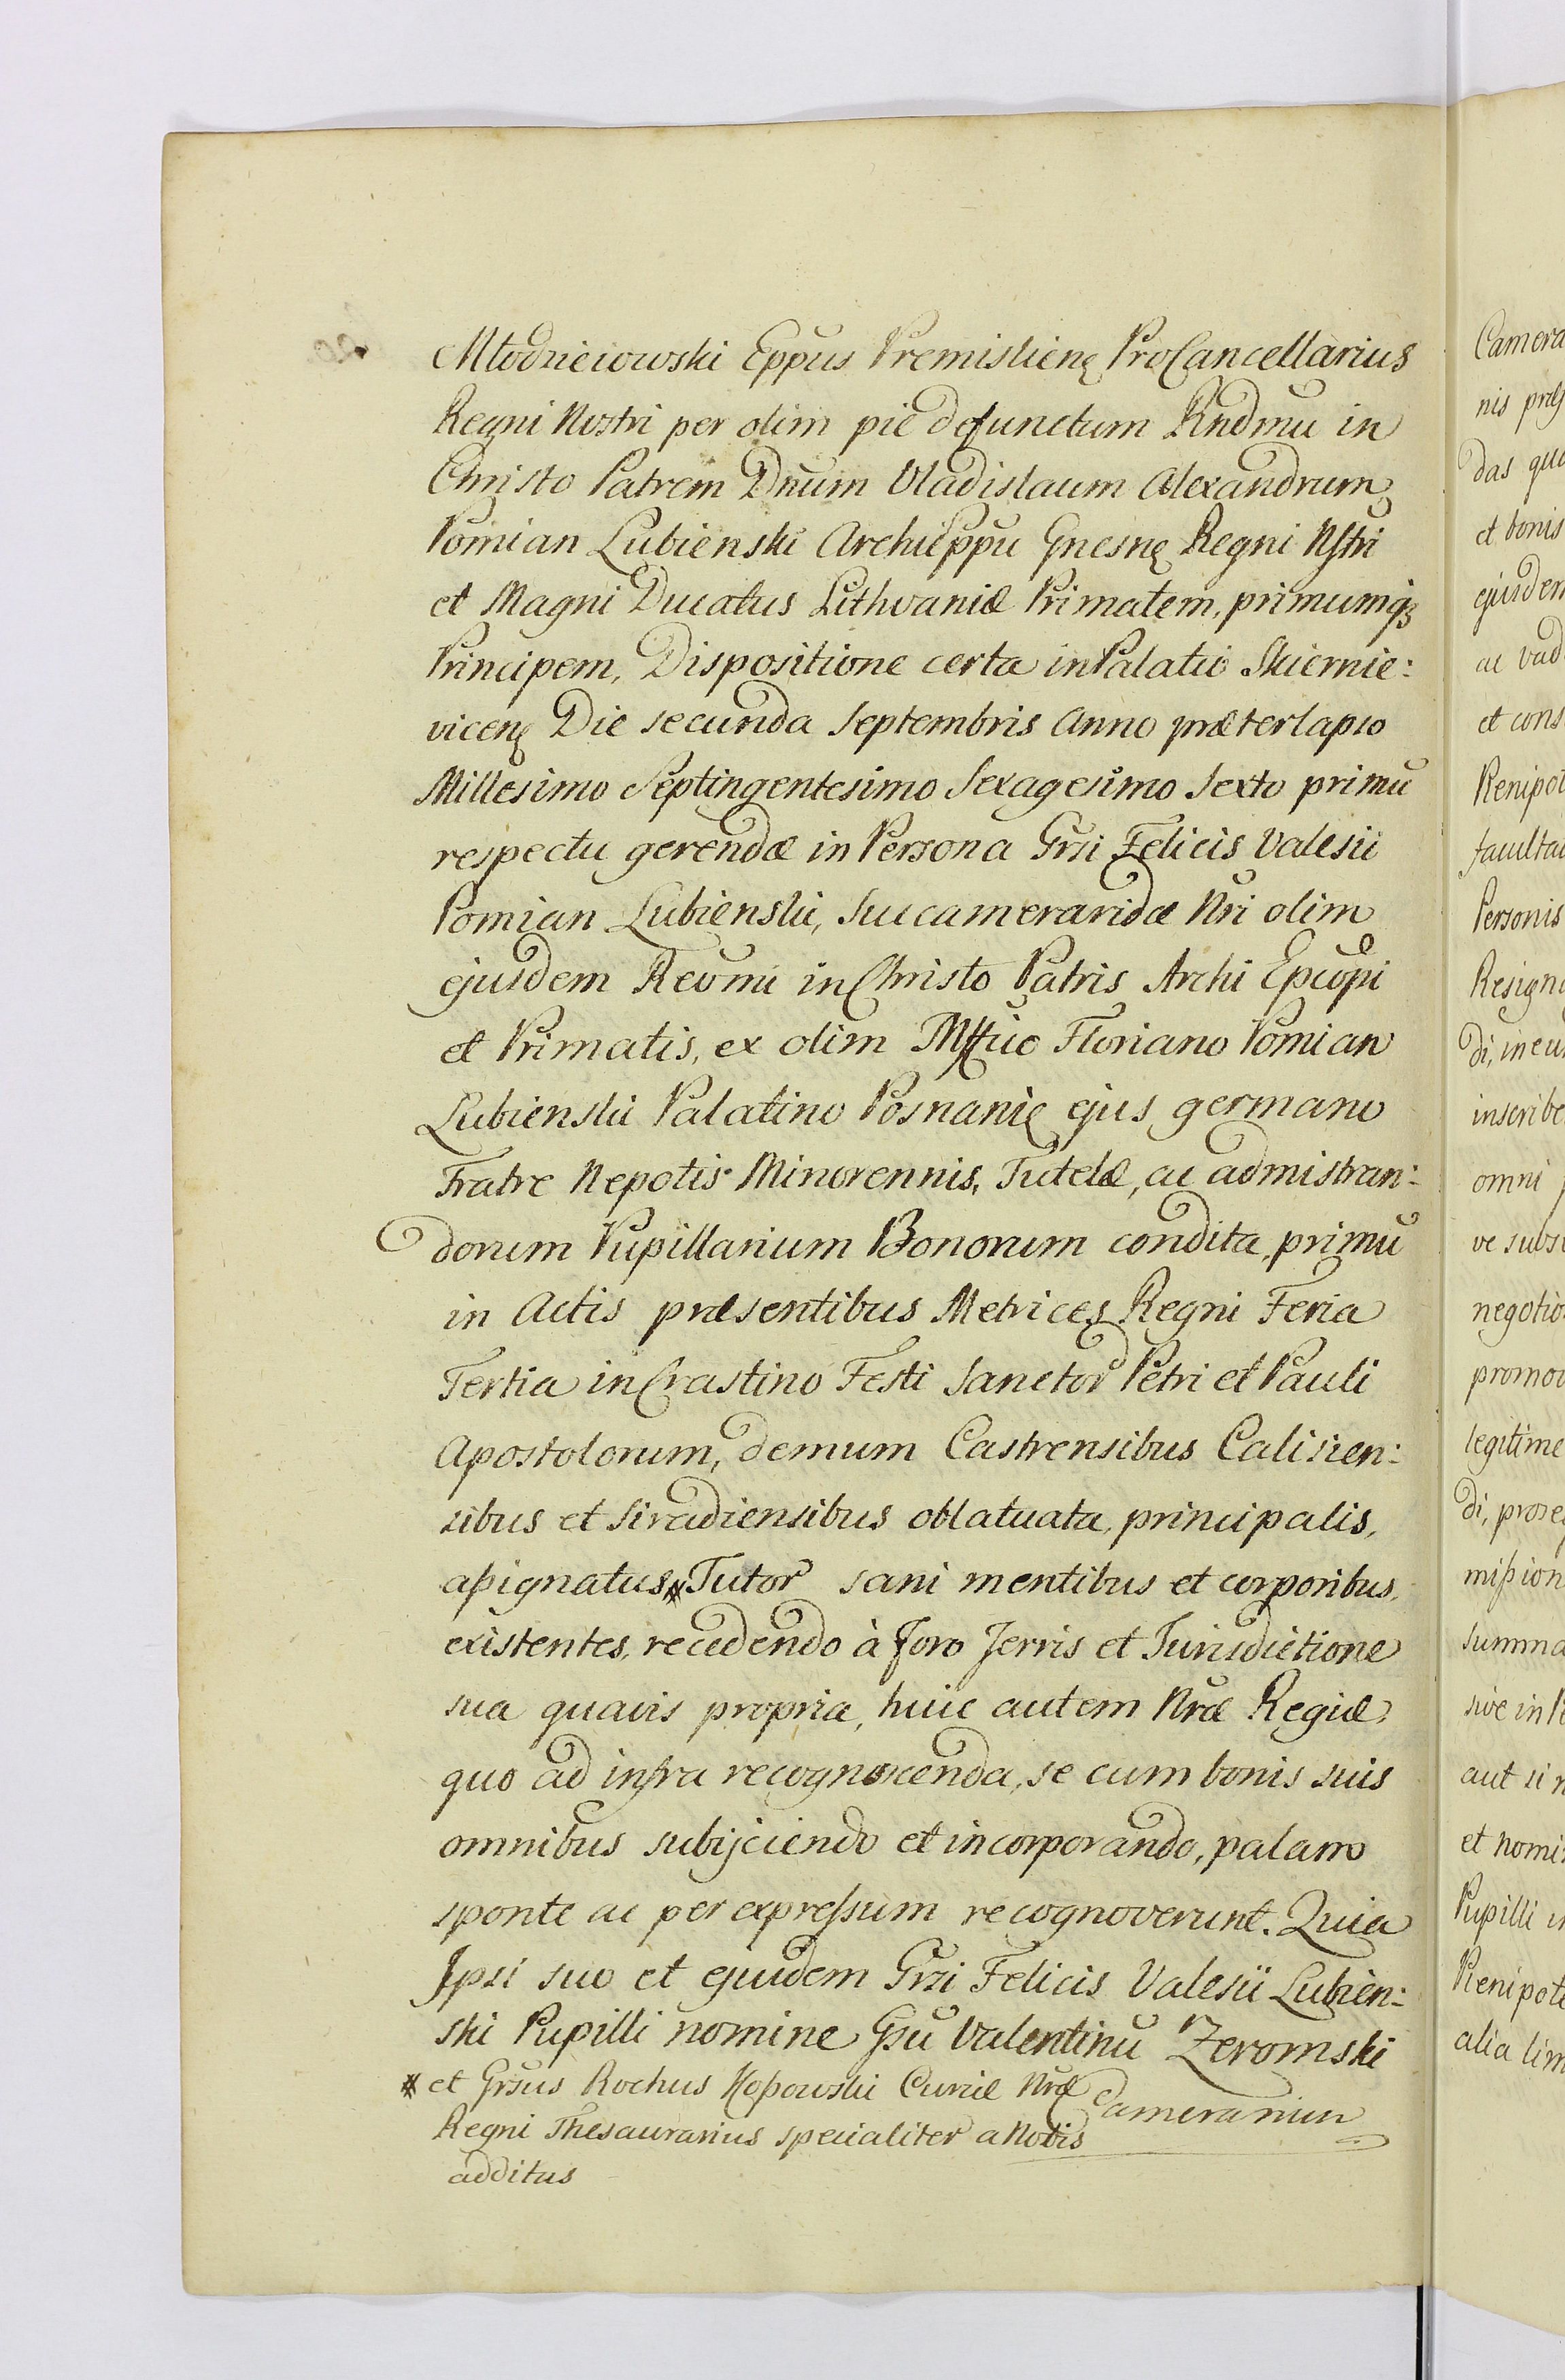 Młodzieiowski Eppus Premislienę ProCancellarius
Regni Nostri per olim piè defunctum Rndmū in
Christo Patrem Dnūm Vladislaum Alexandrum
Pomian Lubienski Archieppū Gnesnę Regni Nstri
et Magni Ducatus Lithvaniæ Primatem, primumqz
Principem, Dispositione certa in Palatio Skiernie:
vicenę Die secunda Septembris Anno præterlapso
Millesimo Septingentesimo Sexagesimo Sexto primū
respectu gerendæ in Persona Grsi Felicis Valesii
Pomian Lubienski, Succameraridæ Nri olim
ejusdem Revmi in Christo Patris Archi Epcopi
et Primatis, ex olim Mfico Floriano Pomian
Lubienski Palatino Posnanię ejus germano
Fratre Nepotis Minorennis, Tutelæ, ac admistran:
dorum Pupillarium Bonorum condita, primū
in Actis præsentibus Metrices Regni Feria
Tertia in Crastino Festi Sanctor Petri et Pauli
Apostolorum, demum Castrensibus Calisien:
sibus et Siradiensibus oblatuata, principalis,
aßignatus * Tutor sani mentibus et corporibus,
existentes, recedendo à foro Terris et Jurisdictione
sua quavis propria, huic autem Nræ Regiæ,
quo ad infra recognoscenda, se cum bonis suis
omnibus subijciendo et incorporando, palam
sponte ac per expressum recognoverunt. Quia
Ipsi suo et ejusdem Grsi Felicis Valesii Lubien:
ski Pupilli nomine Gsū Valentinū Zeromski
* et Grsus Rochus Koßowski Curiæ Nræ
Camerarium
Regni Thesaurarius specialiter a Nobis
additus
Camera
nis præs
das qua
et bonis
ejusdem
ac vad
et cons
Plenipot
faculta
Personis
Resigna
di, in eu
inscribe
omni
ve subs
negotio
promov
legitime
di, prose
mißion
summa
sive in
aut si n
et nomi
Pupilli
Plenipote
alia lim